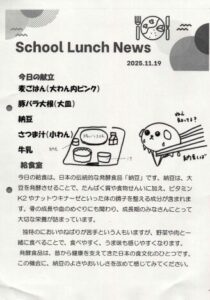 School Lunch News
2025.11.19
今日の献立
麦ごはん(大わん内ピンク)
豚バラ大根(大皿)
納豆
さつま汁(小わん)
牛乳
給食室
今日の給食は、日本の伝統的な発酵食品「納豆」です。納豆は、大
豆を発酵させることで、たんぱく質や食物せんいに加え、ビタミン
K2やナットウキナーゼといった体の調子を整える成分が含まれま
す。骨の成長や血のめぐりにも関わり、成長期のみなさんにとって
大切な栄養が詰まっています。
独特のにおいやねばりが苦手という人もいますが、野菜や肉と一
緒に食べることで、食べやすく、うま味も感じやすくなります。
発酵食品は、昔から健康を支えてきた日本の食文化のひとつです。
この機会に、納豆のよさやおいしさを改めて感じてみてください。